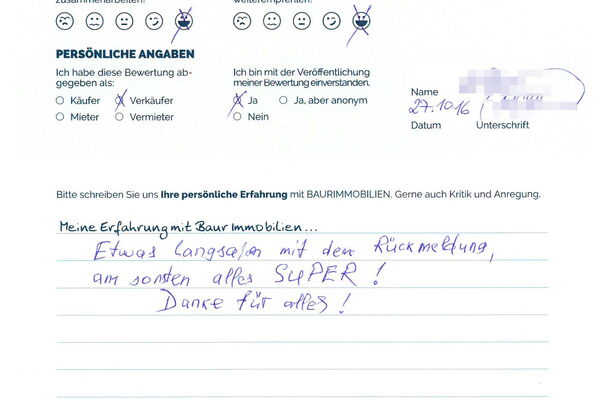 zusammenarbeiten? weiterempfehlen?
PERSÖNLICHE ANGABEN
Ich habe diese Bewertung ab-
gegeben als:
Käufer Verkäufer
Mieter Vermieter
Ich bin mit der Veröffentlichung
meiner Bewertung einverstanden.
Ja Ja, aber anonym
Nein
Name
27.10.16
Datum Unterschrift
Bitte schreiben Sie uns Ihre persönliche Erfahrung mit BAURIMMOBILIEN. Gerne auch Kritik und Anregung.
Meine Erfahrung mit Baur Immobilien...
Etwas langsam mit den Rückmeldung,
am sonsten alles SUPER!
Danke für alles!